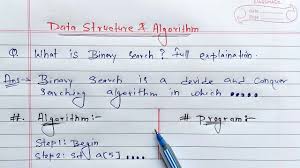 Data Structure & Algorithm
Q. What is Binary search? full explaination.
Ans → Binary Search is a devide and Conquer
Searching algorithm in which .....
#. Algorithm:-
# Program:-
Step1: Begin
Step2: Set a[5] ....